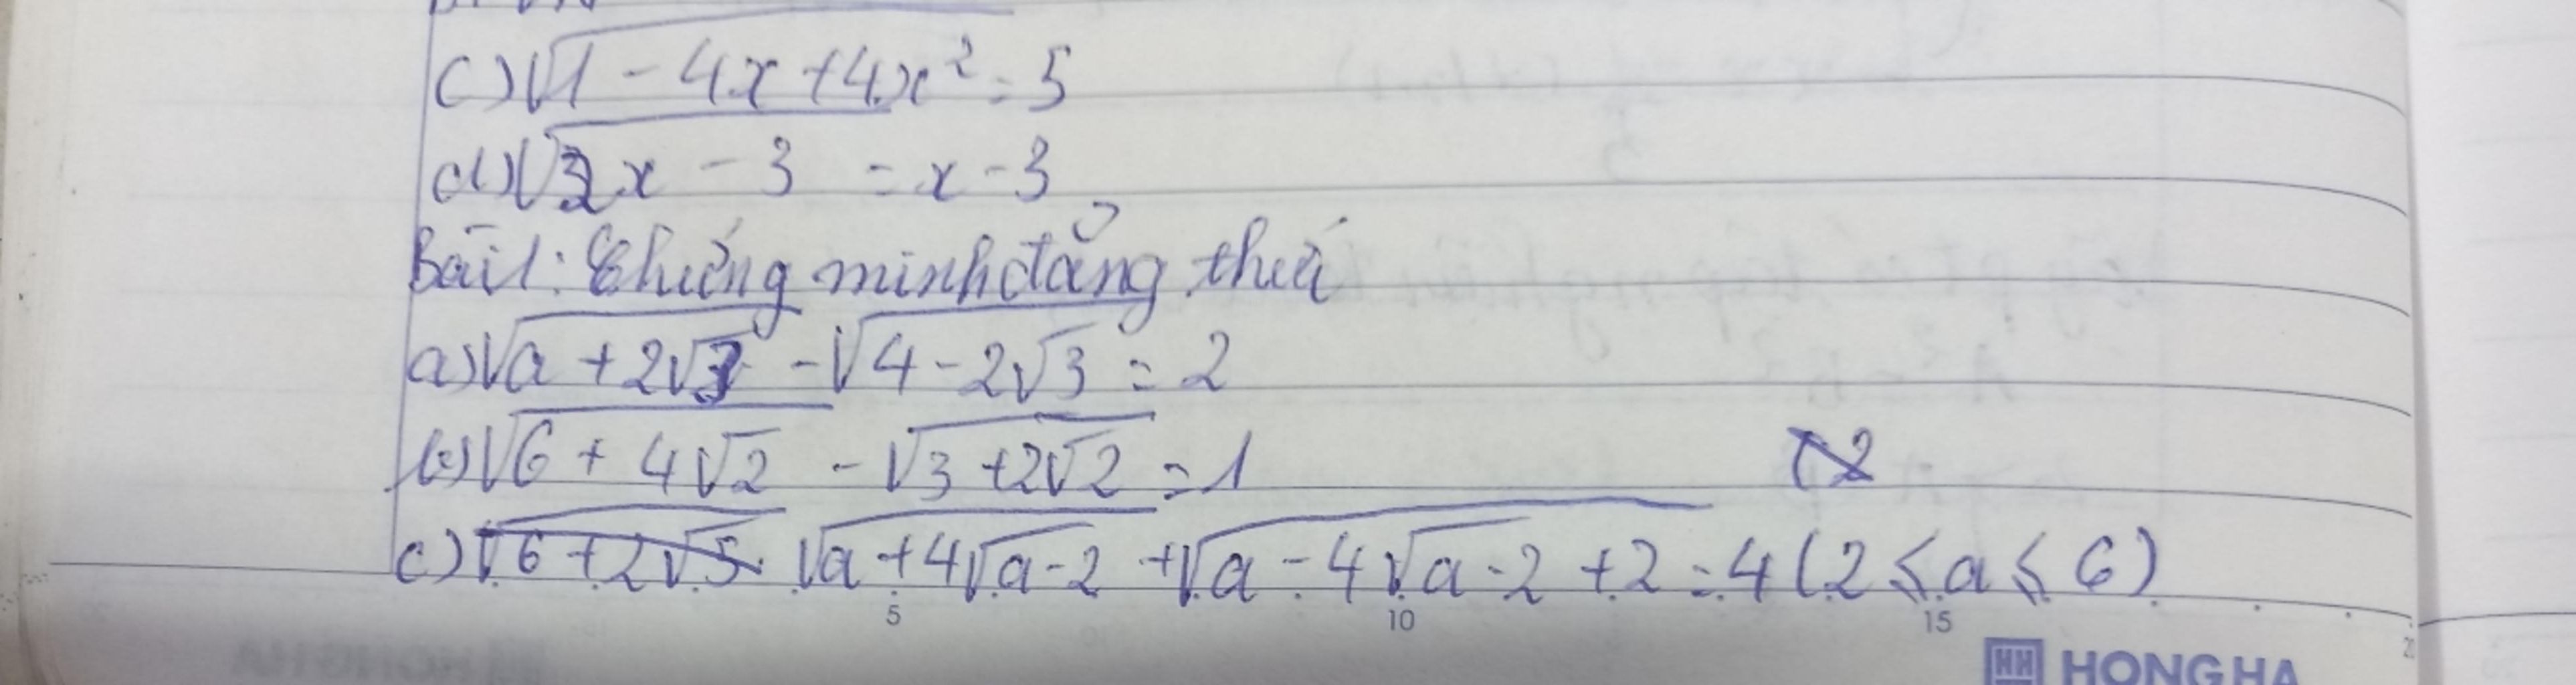 c) √(1 - 4x + 4x²) = 5
d) √(2x - 3) = x - 3
Bài 1: Chứng minh đẳng thức
a) √(a + 2√3) - √(4 - 2√3) = 2
b) √(6 + 4√2) - √(3 + 2√2) = 1
c) √(a + 4√(a - 2)) + √(a - 4√(a - 2) + 2) = 4 (2 ≤ a ≤ 6)
5 10 15
HONG HA